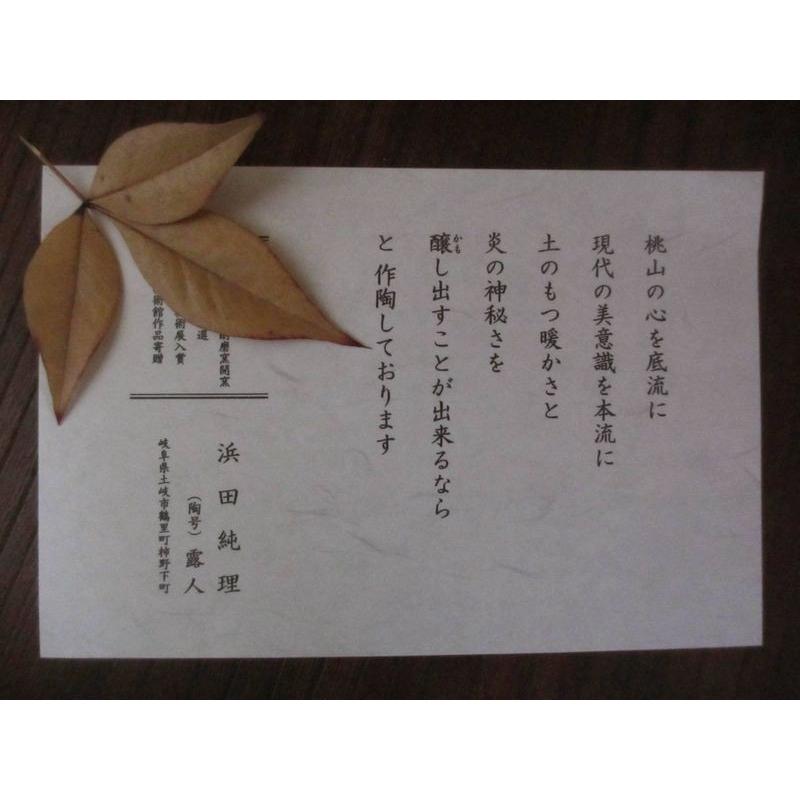 桃山の心を底流に
現代の美意識を本流に
土のもつ暖かさと
炎の神秘さを
醸し出すことが出来るなら
かも
と 作陶しております
磨窯開窯
選
術展入賞
術館作品寄贈
浜田純理
（陶号）露人
岐阜県土岐市鶴里町柿野下町